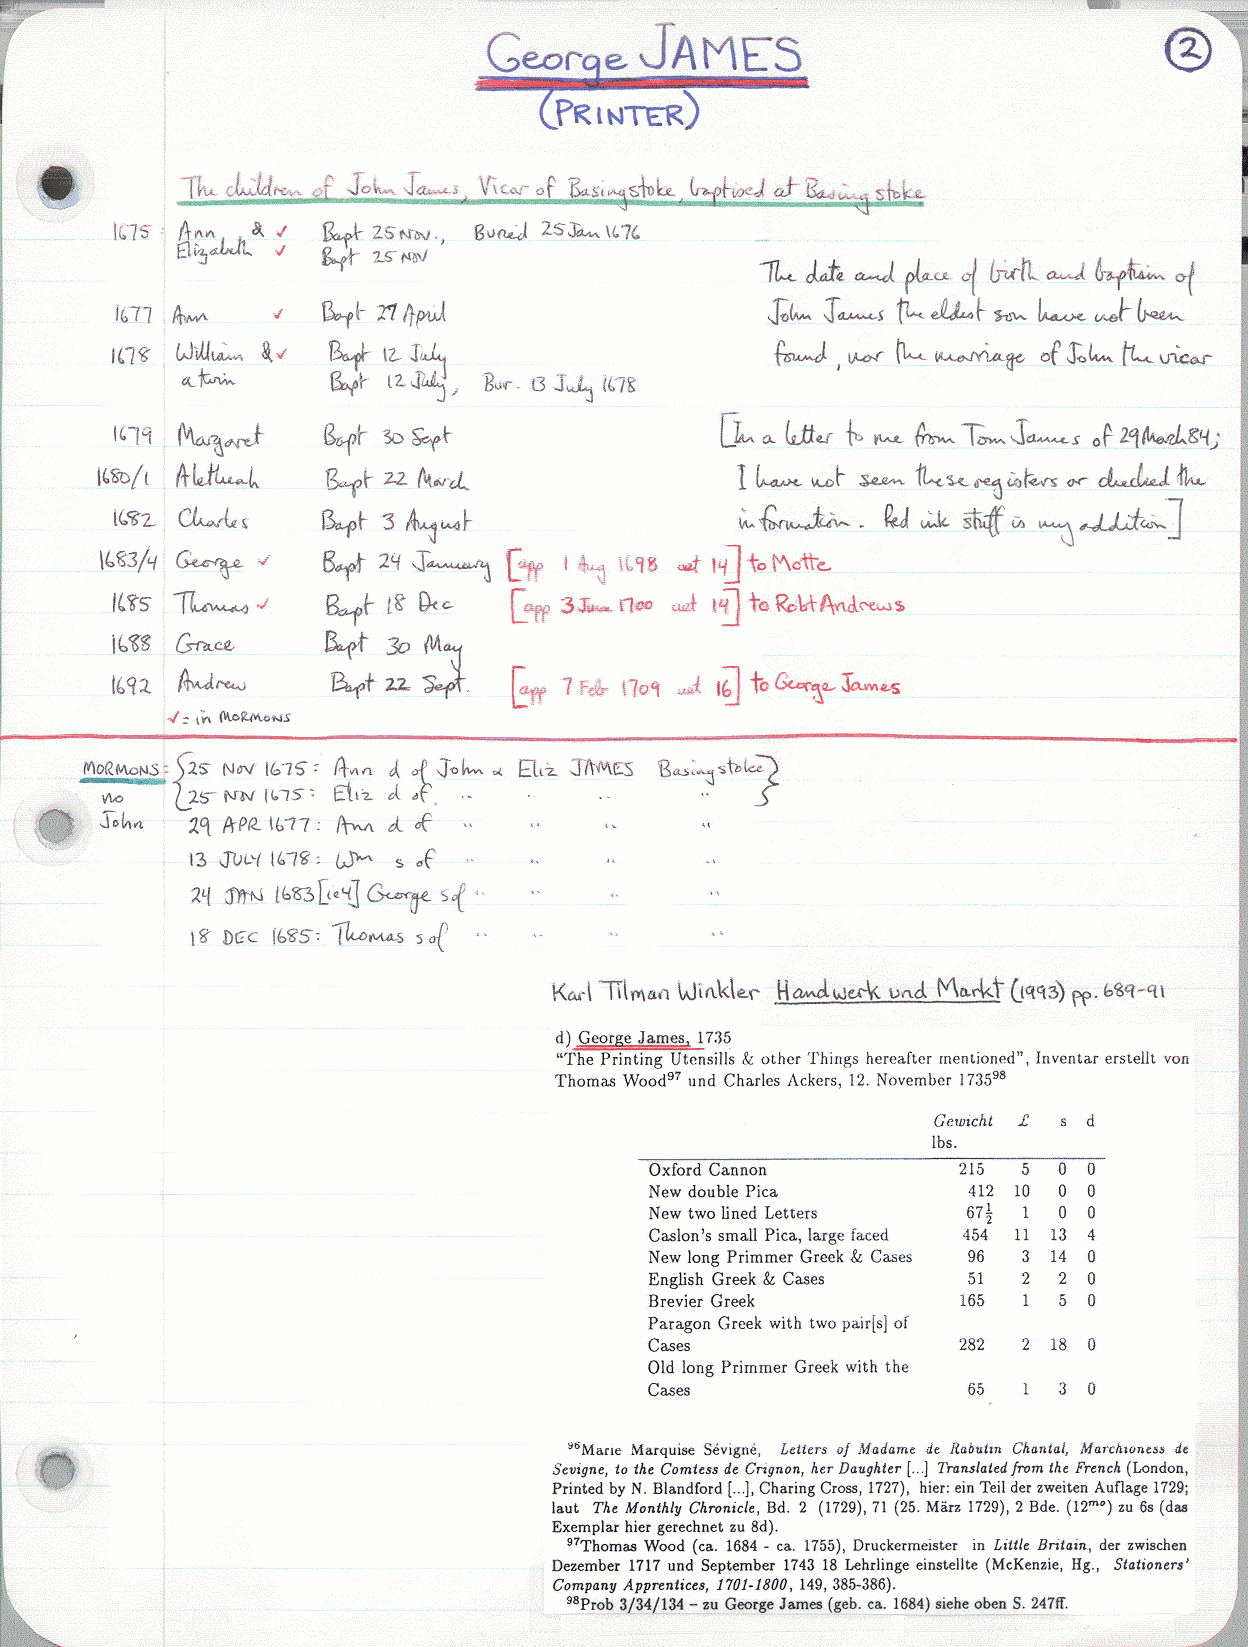 George JAMES
(PRINTER)
2
The children of John James, Vicar of Basingstoke, baptised at Basingstoke
1675: Ann & ✓ Bapt 25 Nov., Buried 25 Jan 1676
Elizabeth ✓ Bapt 25 Nov
1677 Ann ✓ Bapt 27 April
1678 William & ✓ Bapt 12 July
a twin Bapt 12 July, Bur. 13 July 1678
1679 Margaret Bapt 30 Sept
1680/1 Aletheah Bapt 22 March
1682 Charles Bapt 3 August
1683/4 George ✓ Bapt 24 January [app 1 Aug 1698 aet 14] to Motte
1685 Thomas ✓ Bapt 18 Dec [app 3 June 1700 aet 14] to Robt Andrews
1688 Grace Bapt 30 May
1692 Andrew Bapt 22 Sept. [app 7 Feb 1709 aet 16] to George James
✓ = in MORMONS
The date and place of birth and baptism of
John James the eldest son have not been
found, nor the marriage of John the vicar
[In a letter to me from Tom James of 29 March 84;
I have not seen these registers or checked the
information. Red ink stuff is my addition]
MORMONS: {25 NOV 1675: Ann d of John & Eliz JAMES Basingstoke}
no {25 NOV 1675: Eliz d of " " " " }
John 29 APR 1677: Ann d of " " " "
13 JULY 1678: Wm s of " " " "
24 JAN 1683 [ie4] George s of " " " "
18 DEC 1685: Thomas s of " " " "
Karl Tilman Winkler Handwerk und Markt (1993) pp. 689-91
d) George James, 1735
“The Printing Utensills & other Things hereafter mentioned”, Inventar erstellt von
Thomas Wood97 und Charles Ackers, 12. November 173598
Gewicht £ s d
lbs.
Oxford Cannon 215 5 0 0
New double Pica 412 10 0 0
New two lined Letters 67½ 1 0 0
Caslon's small Pica, large faced 454 11 13 4
New long Primmer Greek & Cases 96 3 14 0
English Greek & Cases 51 2 2 0
Brevier Greek 165 1 5 0
Paragon Greek with two pair[s] of
Cases 282 2 18 0
Old long Primmer Greek with the
Cases 65 1 3 0
96Marie Marquise Sévigné, Letters of Madame de Rabutin Chantal, Marchioness de
Sevigne, to the Comtess de Crignon, her Daughter [...] Translated from the French (London,
Printed by N. Blandford [...], Charing Cross, 1727), hier: ein Teil der zweiten Auflage 1729;
laut The Monthly Chronicle, Bd. 2 (1729), 71 (25. März 1729), 2 Bde. (12mo) zu 6s (das
Exemplar hier gerechnet zu 8d).
97Thomas Wood (ca. 1684 - ca. 1755), Druckermeister in Little Britain, der zwischen
Dezember 1717 und September 1743 18 Lehrlinge einstellte (McKenzie, Hg., Stationers'
Company Apprentices, 1701-1800, 149, 385-386).
98Prob 3/34/134 – zu George James (geb. ca. 1684) siehe oben S. 247ff.